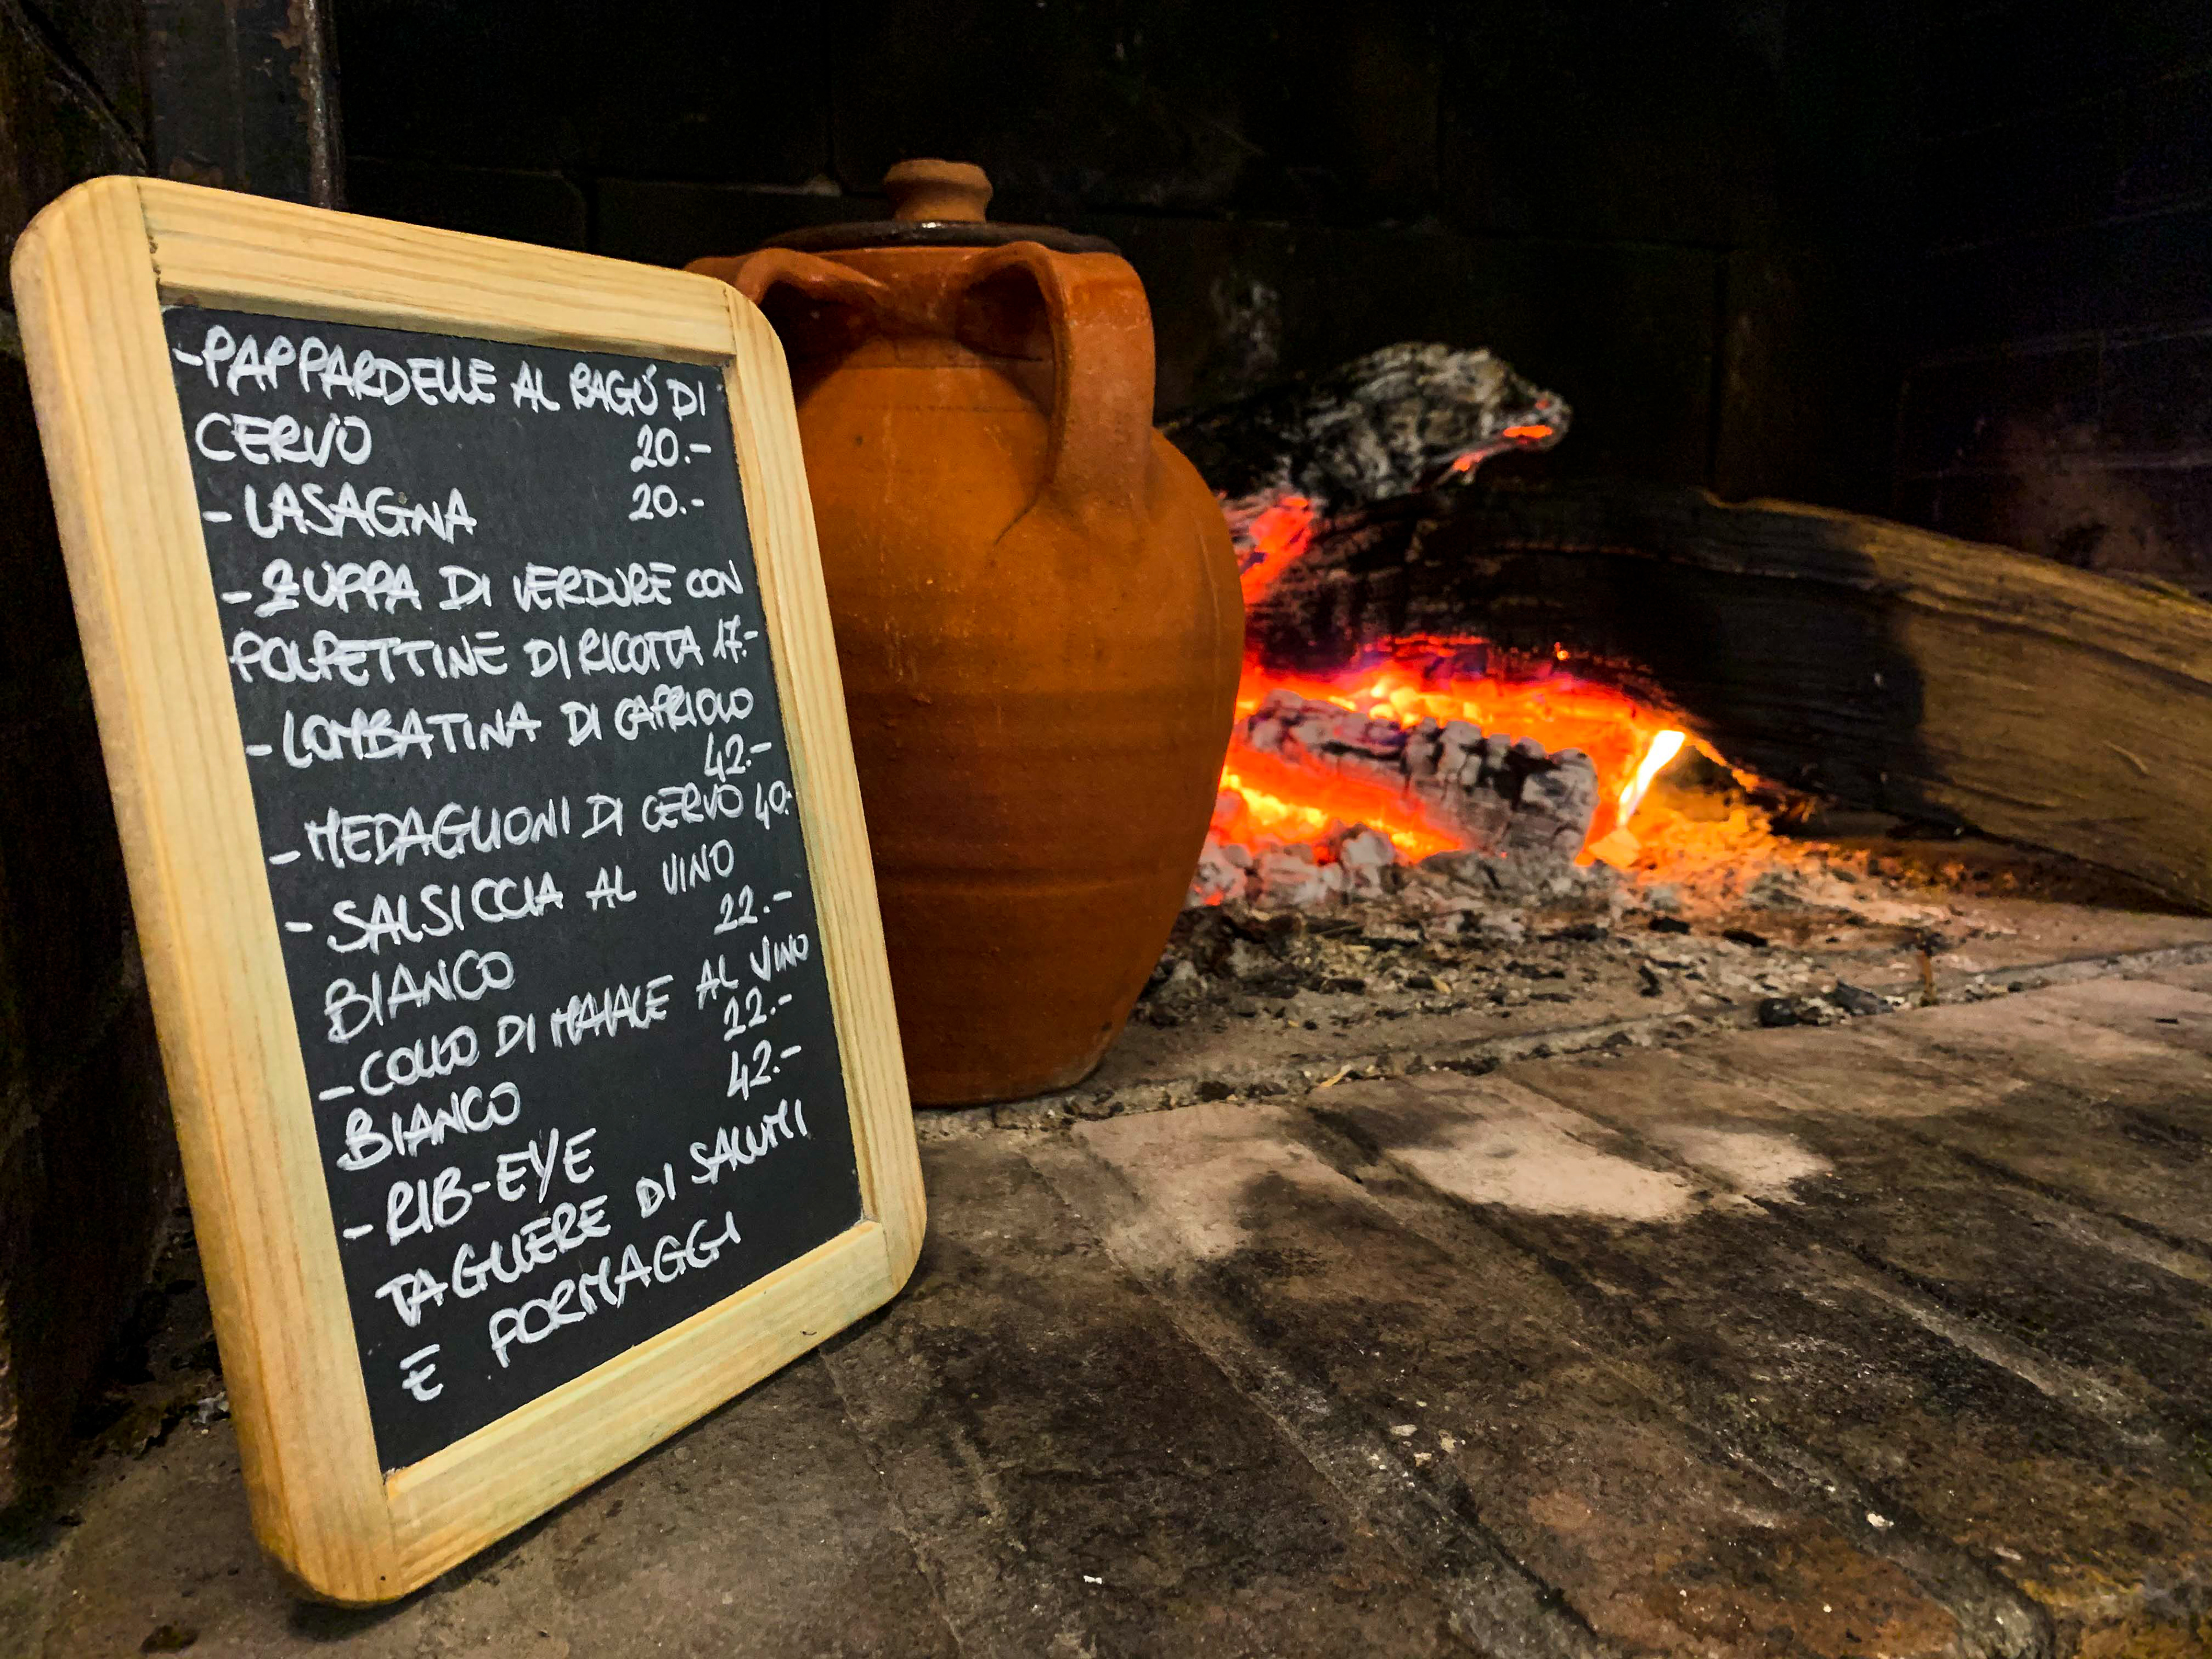 -PAPPARDELLE AL RAGÚ DI
CERVO 20.-
- LASAGNA 20.-
- ZUPPA DI VERDURE CON
POLPETTINE DI RICOTTA 17.-
- LOMBATINA DI CAPRIOLO
42.-
- MEDAGLIONI DI CERVO 40.-
- SALSICCIA AL VINO
BIANCO 22.-
- COLLO DI MAIALE AL VINO
BIANCO 22.-
- RIB-EYE 42.-
TAGLIERE DI SALUMI
E FORMAGGI